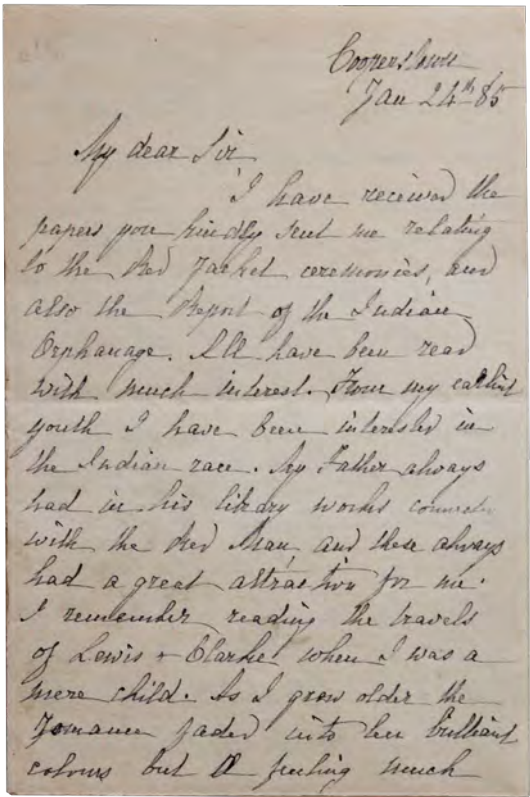 Cooperstown
Jan 24th 85
My dear Sir
I have received the
papers you kindly sent me relating
to the Red Jacket ceremonies, and
also the Report of the Indian
Orphanage. All have been read
with much interest. From my earliest
youth I have been interested in
the Indian race. My Father always
had in his library works
with the Red Man, and these always
had a great attraction for me.
I remember reading the travels
of Lewis + Clarke when I was a
mere child. As I grew older the
romance faded into less brilliant
colours but a feeling much